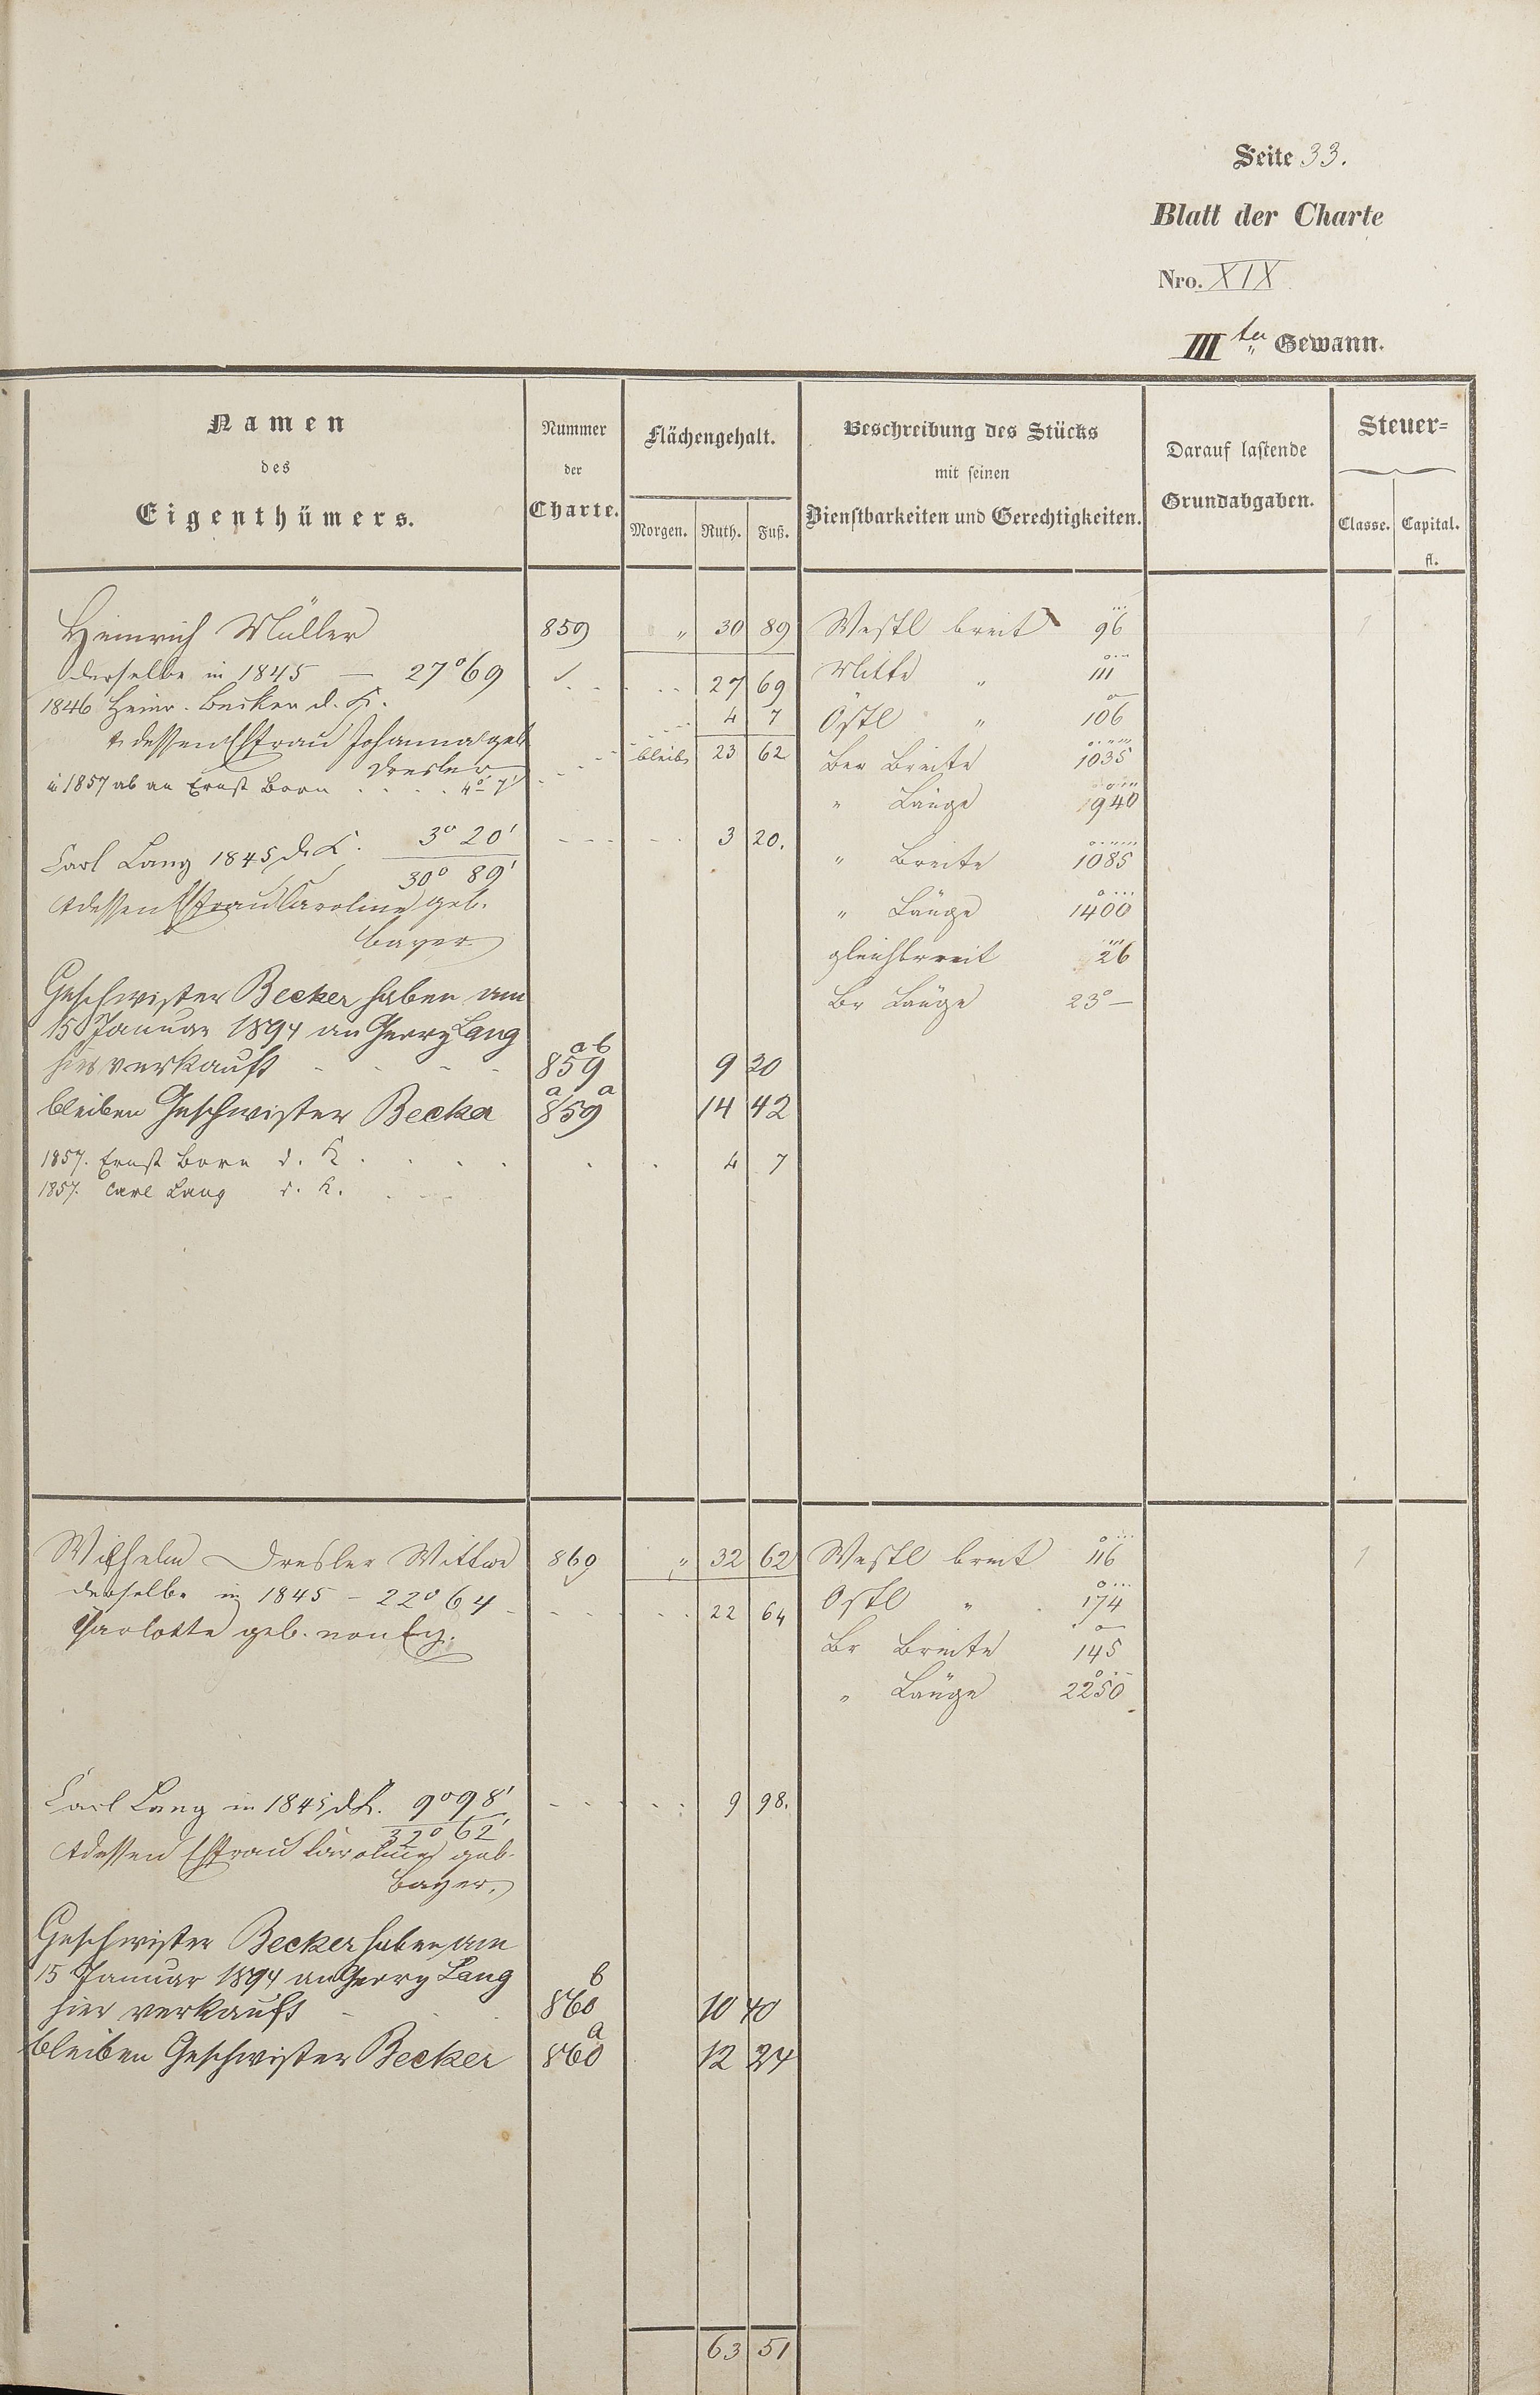 Seite 33.
Blatt der Charte
Nro. XIX
III ter Gewann.
Namen
des
Eigenthümers.
Nummer
der
Charte.
Flächengehalt.
Morgen. Ruth. Fuß.
Beschreibung des Stücks
mit seinen
Dienstbarkeiten und Gerechtigkeiten.
Darauf lastende
Grundabgaben.
Steuer-
Classe. Capital.
fl.
Heinrich Müller 859 " 30 89 Westl breit 96 1
derselbe in 1845 — 27° 69 27 69 Mitte " 111
1846 Heinr. Becker d. K. 4 7 Östl " 106
& dessen Ehfrau Johanna geb bleibt 23 62 Ber Breite 1035
Dresler
in 1857 ab an Ernst Born 4° 7' " Länge 940
Carl Lang 1845 d. K. 3° 20' 3 20. " Breite 1085
30° 89'
& dessen Ehfrau Caroline geb. " Länge 1400
Bayer gleichbreit 26
Br Länge 23° —
Geschwister Becker haben am
15 Januar 1894 an Georg Lang
hier verkauft 859 ab 9 20
bleiben Geschwister Becker 859 a a 14 42
1857. Ernst Born d. K. 4 7
1857. Carl Lang d. K.
Wilhelm Dresler Wittwe 860 " 32 62 Westl breit 116 1
derselbe in 1845 - 22° 64 22 64 Ostl " 174
geb. von Br Breite 145
" Länge 2250
Carl Lang in 1845 d. K. 9° 98' 9 98.
32° 62'
& dessen Ehfrau Caroline geb.
Bayer.
Geschwister Becker haben am
15 Januar 1894 an Georg Lang
hier verkauft 860 b 10 40
bleiben Geschwister Becker 860 a 12 24
63 51